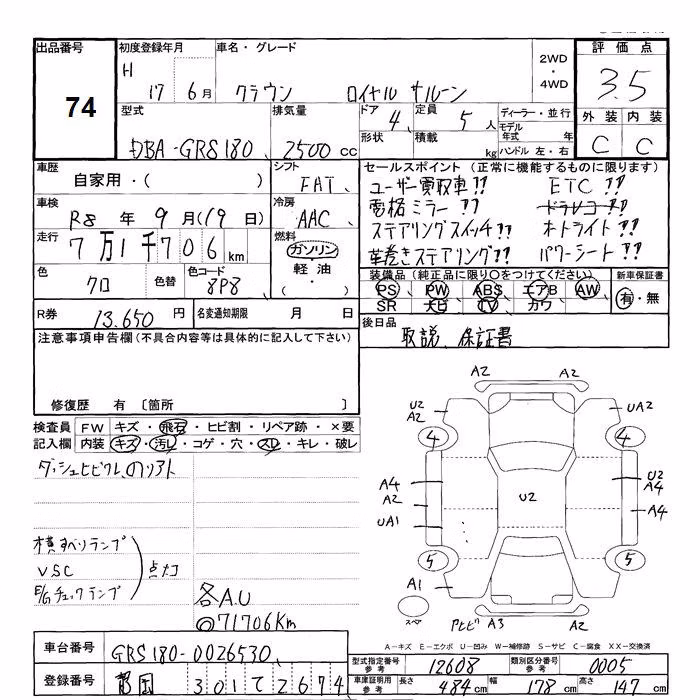 出品番号
74
初度登録年月
H 17 6月
車名・グレード
クラウン ロイヤル サルーン
2WD
・
4WD
評価点
3.5
外装 内装
C C
型式
DBA-GRS180
排気量
2500 cc
ドア
4
定員
5人
形状
積載
kg
ディーラー・並行
モデル年式 年
ハンドル 左・右
車歴
自家用・( )
シフト
FAT
車検
R8年9月(19日)
冷房
AAC
走行
7万1千706km
燃料
ガソリン
軽油
( ・ )
色
クロ
色替
色コード
8P8
R券
13.650円
名変通知期限 月 日
セールスポイント(正常に機能するものに限ります)
ユーザー買取車!! ETC!!
電格ミラー!! ドラレコ!!
ステアリングスイッチ!! オートライト!!
革巻きステアリング!! パワーシート!!
装備品(純正品に限り○をつけてください)
新車保証書
PS PW ABS エアB AW
SR ナビ TV カワ
有・無
後日品
取説、保証書
注意事項申告欄(不具合内容等は具体的に記入して下さい)
修復歴 有 〔箇所 〕
検査員記入欄
FW キズ・飛石・ヒビ割・リペア跡・×要
内装 キズ・汚し・コゲ・穴・スレ・キレ・破レ
ダッシュヒビワレ、のりアト
横すべりランプ
VSC
E/Gチェックランプ
点灯
各A.U
◎71706Km
A2 A2
U2 A2
UA2
4 4
A4
A2
UA1
U2
U2
A4
A4
5 5
A1
スペア
A3 A2
A-キズ E-エクボ U-凹み W-補修跡 S-サビ C-腐食 XX-交換済
車台番号
GRS180-0026530
登録番号
301 2674
型式指定番号 参考
12608
類別区分番号 参考
0005
車庫証明用 参考
長さ 484cm
幅 178cm
高さ 147cm